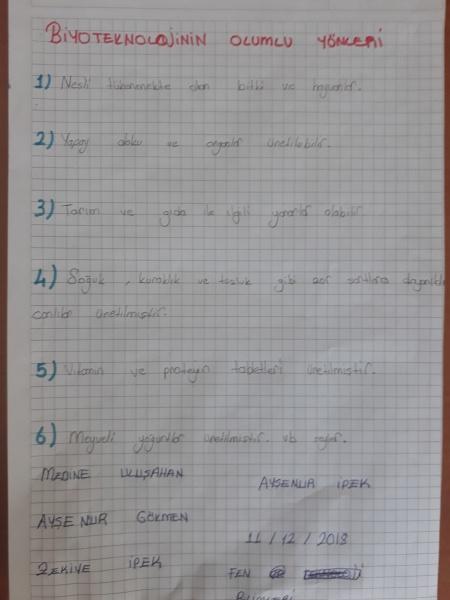 BİYOTEKNOLOJİNİN OLUMLU YÖNLERİ
1) Nesli tükenmekte olan bitki ve hayvanlar.
2) Yapay doku ve organlar üretilebilir.
3) Tarım ve gıda ile ilgili yararlar olabilir.
4) Soğuk, kuraklık ve tuzluk gibi zor şartlara dayanıklı
canlılar üretilmiştir.
5) Vitamin ve proteyin tabletleri üretilmiştir.
6) Meyveli yoğurtlar üretilmiştir. vb şeyler.
MEDİNE ULUŞAHAN
AYŞENUR İPEK
AYŞE NUR GÖKMEN
11/12/2018
ZEKİYE İPEK
FEN
BİLİMLERİ